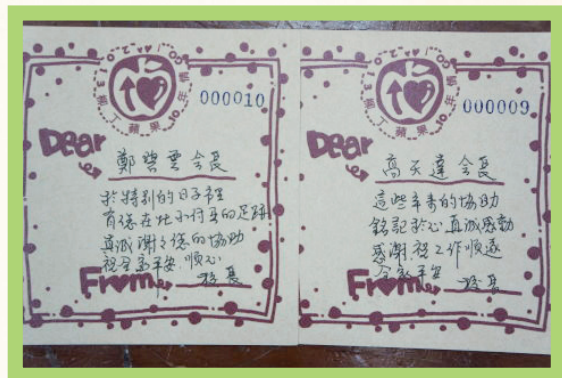 2013 GO!
園丁蘋果10年情
000010
Dear
鄭碧雲会長
於特别的日子裡
有您在此小付出的足跡
真誠謝謝您的協助
祝全家平安、順心
From 校長
000009
Dear
高天達会長
這些年來的協助
銘記於心真誠感動
感謝祝工作順遂
全家平安
From 校長